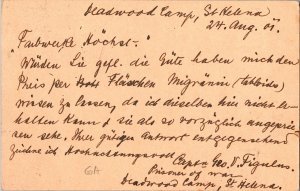 Deadwood Camp, St Helena
24. Aug. 01.
"Farbwerke Höchst."
Würden Sie gefl. die Güte haben mich den
Preis per Fläschen Migränin (tabloids)
wissen zu lassen, da ich dieselben hier nicht er-
halten kann & sie als so vorzüglich angeprie-
sen sehe. Ihrer gütigen Antwort entgegensehend
zeichne ich Hochachtungsvoll
Geo. V. Figulus.
Prisoner of war
Deadwood Camp, St. Helena.